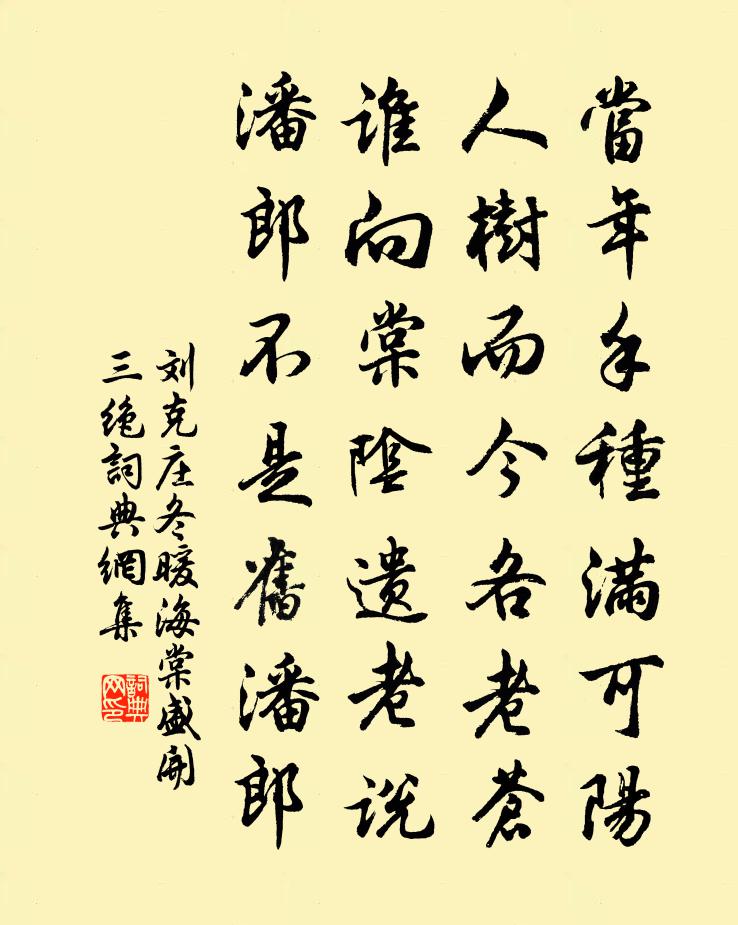 當年手種滿可陽
人樹而今各老蒼
誰向棠陰遺老説
潘郎不是舊潘郎
刘克庄冬暖海棠盛開
三絶詞典網集
詞典网印